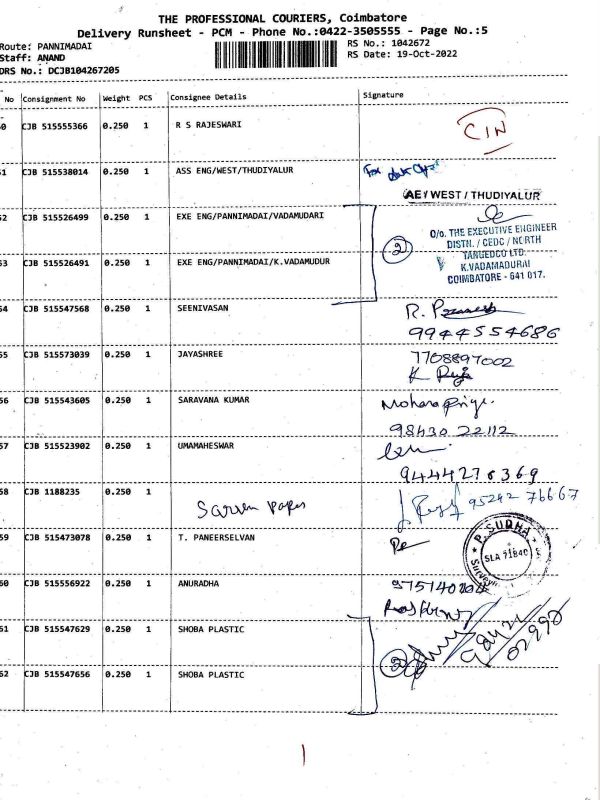 THE PROFESSIONAL COURIERS, Coimbatore
Delivery Runsheet - PCM - Phone No.:0422-3505555 - Page No.:5
Route: PANNIMADAI
RS No.: 1042672
Staff: ANAND
RS Date: 19-Oct-2022
DRS No.: DCJB104267205
No Consignment No Weight PCS Consignee Details Signature
0 CJB 515555366 0.250 1 R S RAJESWARI CIN
51 CJB 515538014 0.250 1 ASS ENG/WEST/THUDIYALUR
AE / WEST / THUDIYALUR
52 CJB 515526499 0.250 1 EXE ENG/PANNIMADAI/VADAMUDARI
2
O/o. THE EXECUTIVE ENGINEER
DISTN. / CEDC / NORTH
TANGEDCO LTD.
K.VADAMADURAI
COIMBATORE - 641 017.
53 CJB 515526491 0.250 1 EXE ENG/PANNIMADAI/K.VADAMUDUR
54 CJB 515547568 0.250 1 SEENIVASAN R.
9944554686
55 CJB 515573039 0.250 1 JAYASHREE 7708897002
K
56 CJB 515543605 0.250 1 SARAVANA KUMAR Mohanapriya.
98430 22112
57 CJB 515523902 0.250 1 UMAMAHESWAR
9444276369
58 CJB 1188235 0.250 1 95242 76667
59 CJB 515473078 0.250 1 T. PANEERSELVAN
P. SUDHA
SLA 21840
60 CJB 515556922 0.250 1 ANURADHA
61 CJB 515547629 0.250 1 SHOBA PLASTIC
2
62 CJB 515547656 0.250 1 SHOBA PLASTIC